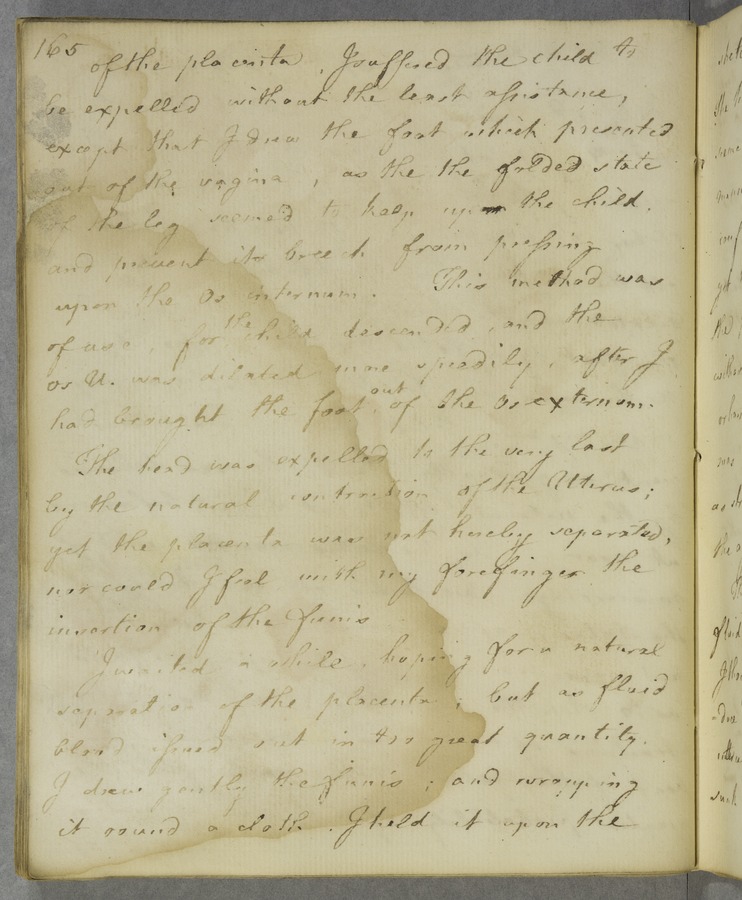 165
of the placenta, I suffered the child to
be expelled without the least assistance,
except that I drew the foot which presented
out of the vagina, as the the folded state
of the leg seemed to keep up the child.
and prevent its breech from pressing
upon the Os internum. This method was
of use, for the child descended, and the
os U. was dilated more speedily, after I
had brought the foot out of the Os externum.
The head was expelled to the very last
by the natural contraction of the Uterus;
yet the placenta was not hereby separated,
nor could I feel with my forefinger the
insertion of the funis
I waited a while, hoping for a natural
separation of the placenta; but as fluid
blood issued out in too great quantity.
I drew gently the funis; and wrapping
it round a cloth. I held it upon the